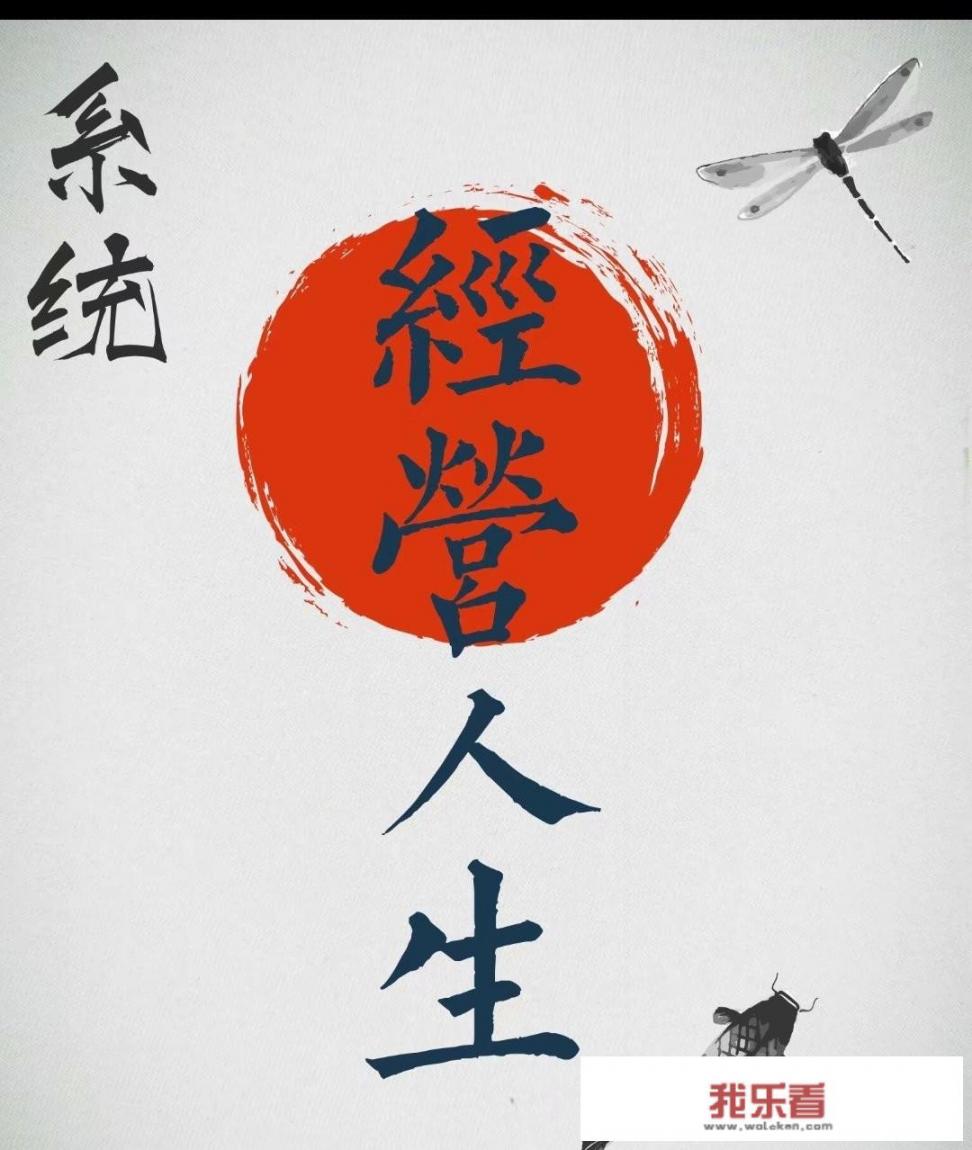 系统
經營人生
我乐看
www.woleken.com